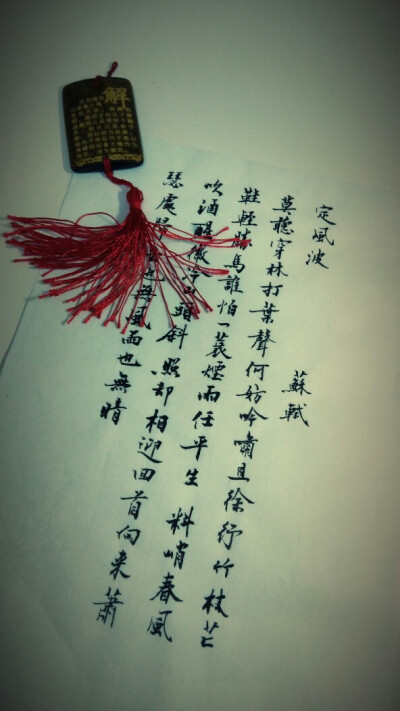 定風波
蘇軾
莫聽穿林打葉聲何妨吟嘯且徐行竹杖芒
鞋輕勝馬誰怕一蓑煙雨任平生 料峭春風
吹酒醒微冷山頭斜照却相迎回首向来蕭
瑟處歸 也無風雨也無晴
解